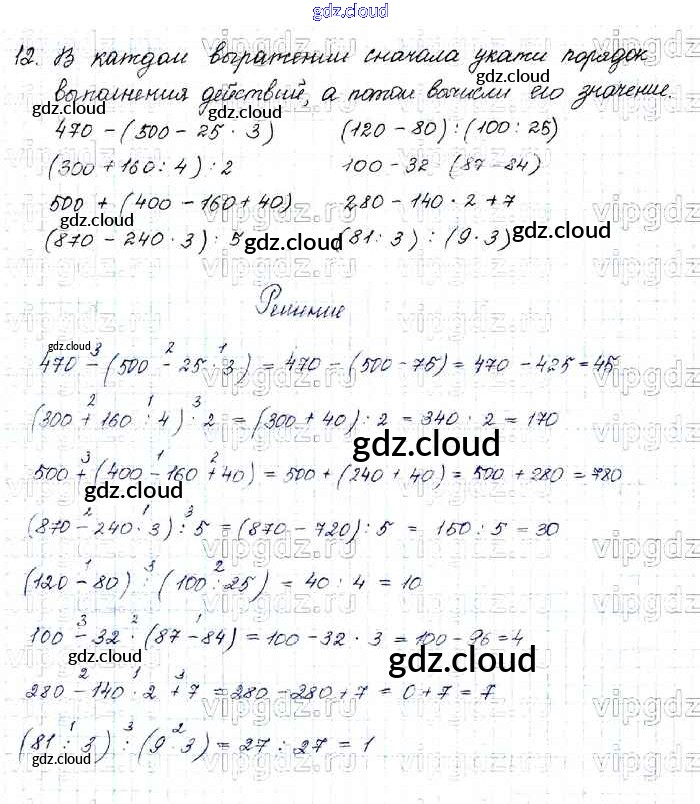 gdz.cloud
12. В каждом выражении сначала укажи порядок
выполнения действий, а потом вычисли его значение.
gdz.cloud
470 - (500 - 25 · 3) (120 - 80) : (100 : 25)
(300 + 160 : 4) : 2 100 - 32 · (87 - 84)
500 + (400 - 160 + 40) 280 - 140 · 2 + 7
gdz.cloud
(870 - 240 · 3) : 5 (81 : 3) : (9 · 3)
gdz.cloud gdz.cloud
Решение
gdz.cloud 3 2 1
470 - (500 - 25 · 3) = 470 - (500 - 75) = 470 - 425 = 45
2 1 3
(300 + 160 : 4) : 2 = (300 + 40) : 2 = 340 : 2 = 170
gdz.cloud
3 1 2
500 + (400 - 160 + 40) = 500 + (240 + 40) = 500 + 280 = 780
gdz.cloud
2 1 3
(870 - 240 · 3) : 5 = (870 - 720) : 5 = 150 : 5 = 30
1 3 2
(120 - 80) : (100 : 25) = 40 : 4 = 10
3 2 1
100 - 32 · (87 - 84) = 100 - 32 · 3 = 100 - 96 = 4
gdz.cloud gdz.cloud
2 1 3
280 - 140 · 2 + 7 = 280 - 280 + 7 = 0 + 7 = 7
1 3 2
(81 : 3) : (9 · 3) = 27 : 27 = 1
gdz.cloud